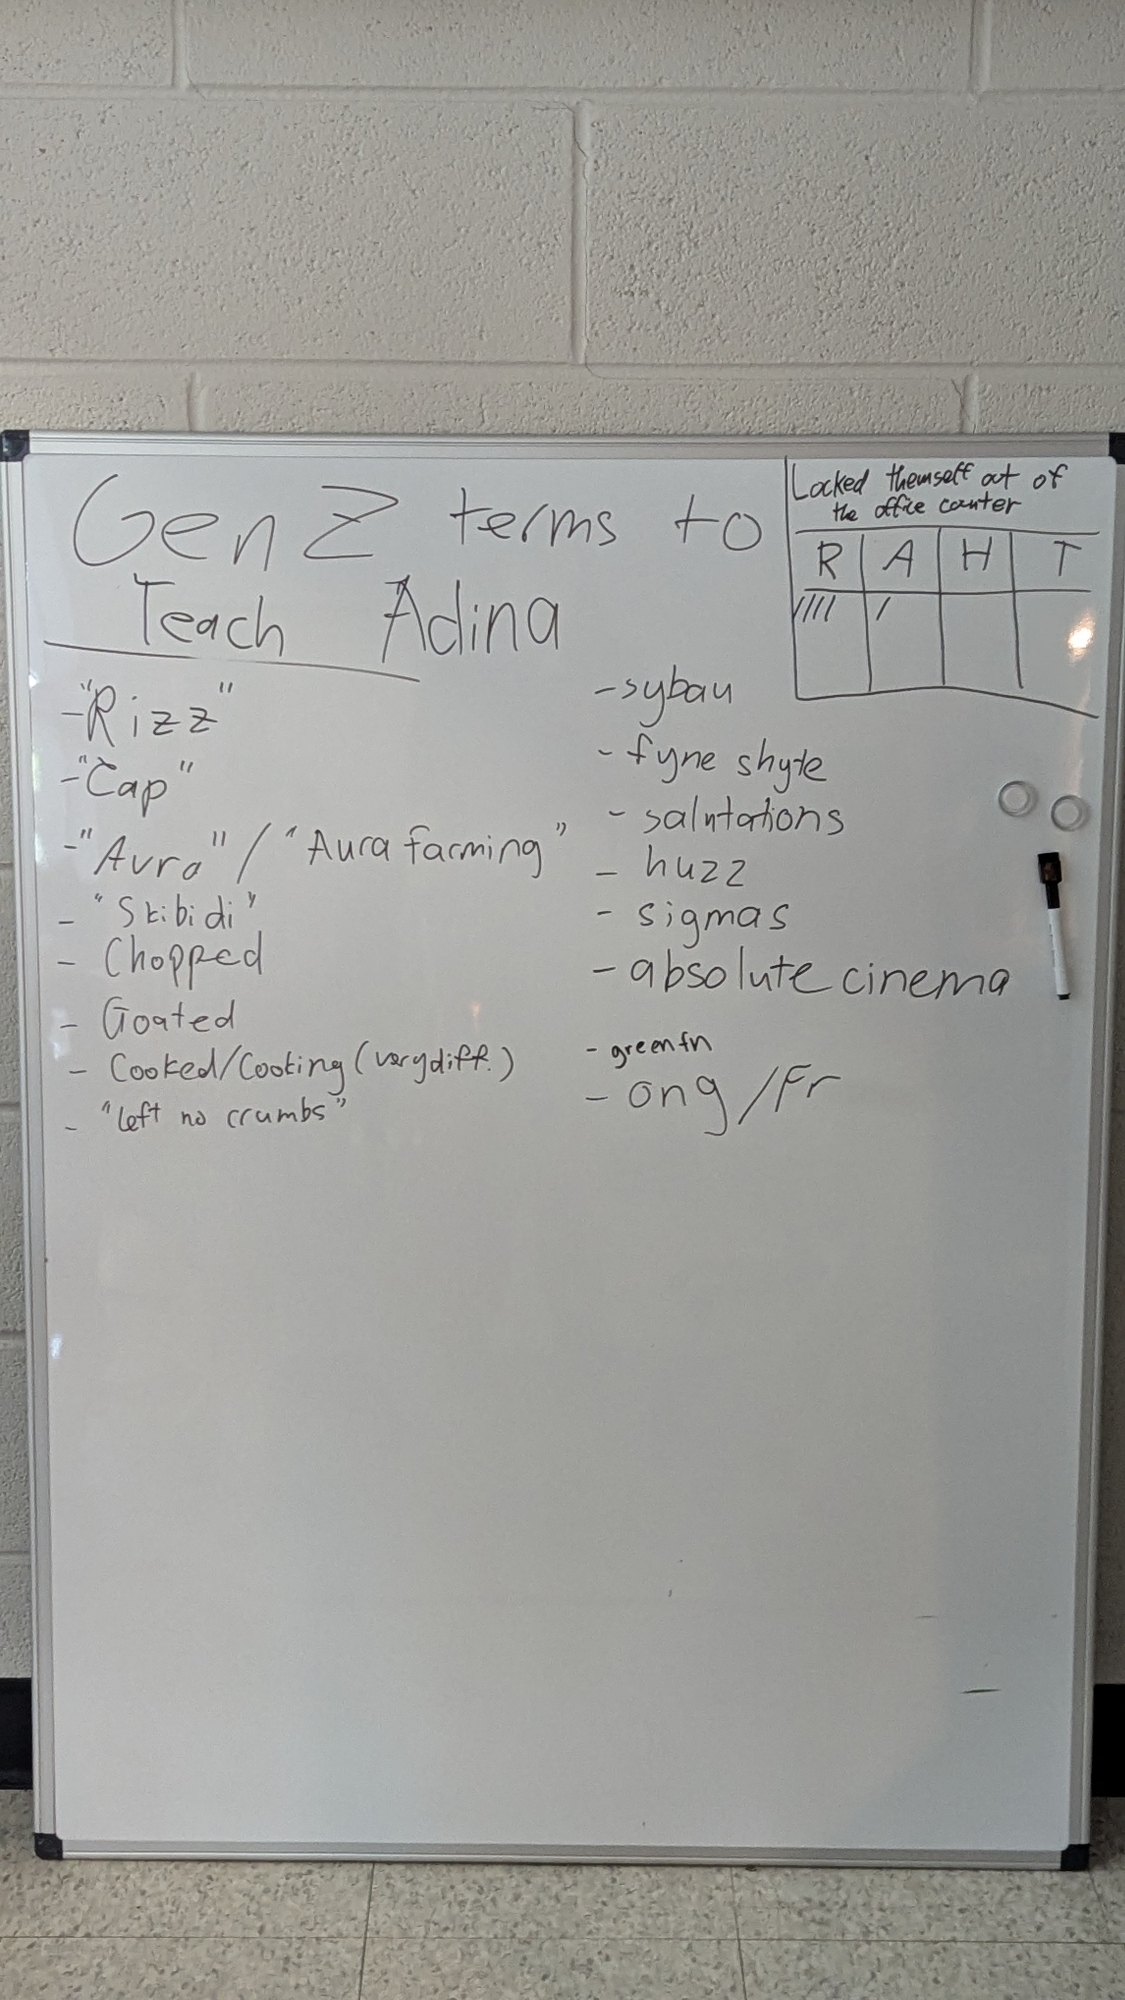 Gen Z terms to
Teach Adina
Locked themself out of
the office counter
R A H T
//// /
- "Rizz"
- "Cap"
- "Aura" / "Aura farming"
- "Skibidi"
- Chopped
- Goated
- Cooked/Cooking (very diff.)
- "left no crumbs"
- sybau
- fyne shyte
- salutations
- huzz
- sigmas
- absolute cinema
- green fn
- ong /Fr